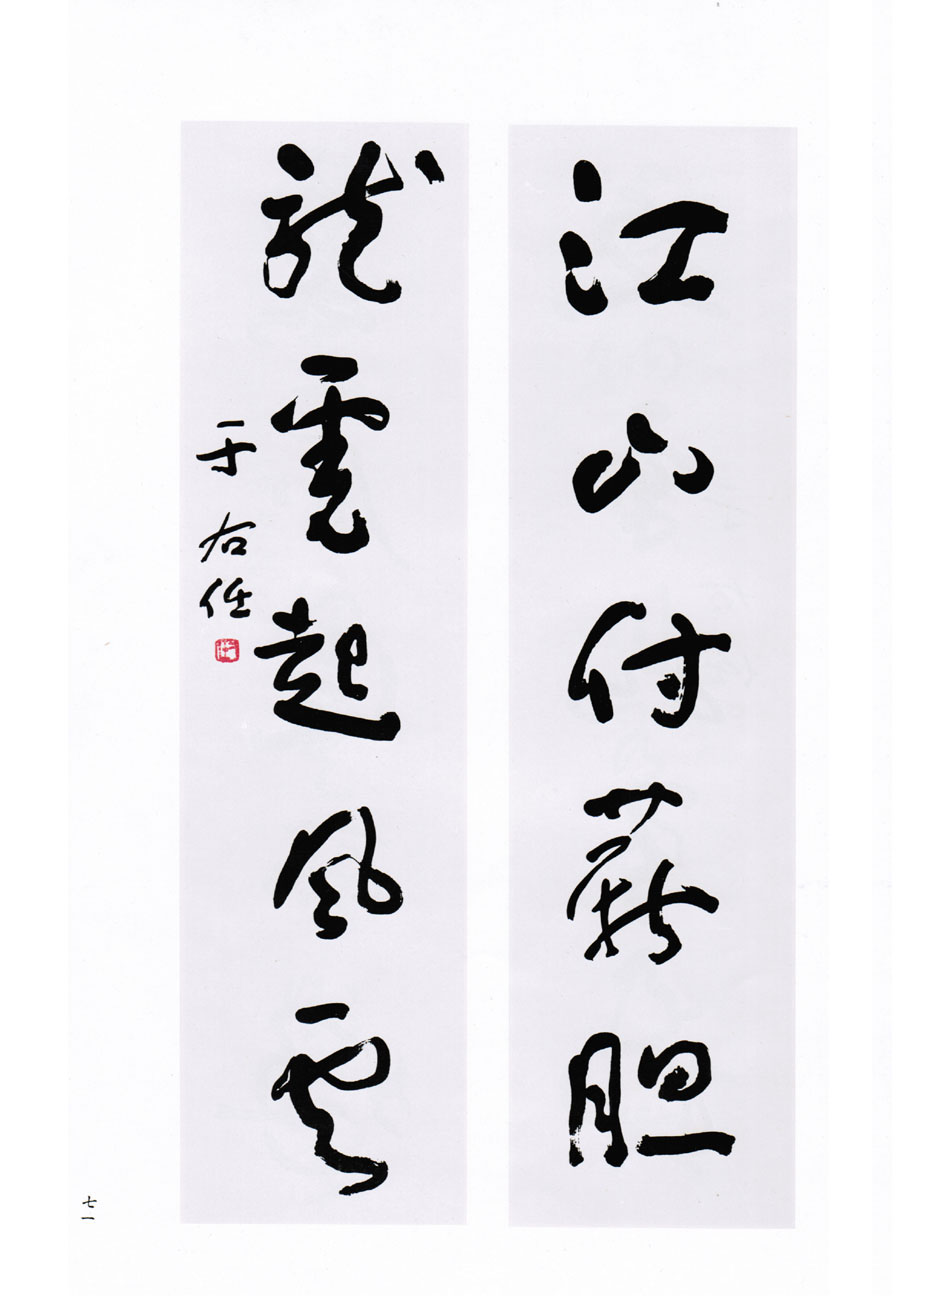 江山付薪胆
龍虎起風雲
于右任
七一